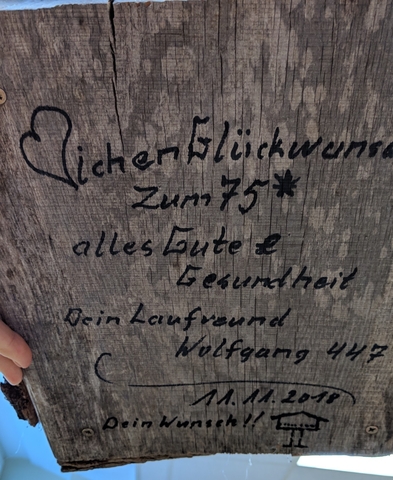 ichen Glückwunsc
Zum 75*
alles Gute &
Gesundheit
Dein Laufreund
Wolfgang 447
11.11.2018
Dein Wunsch!!